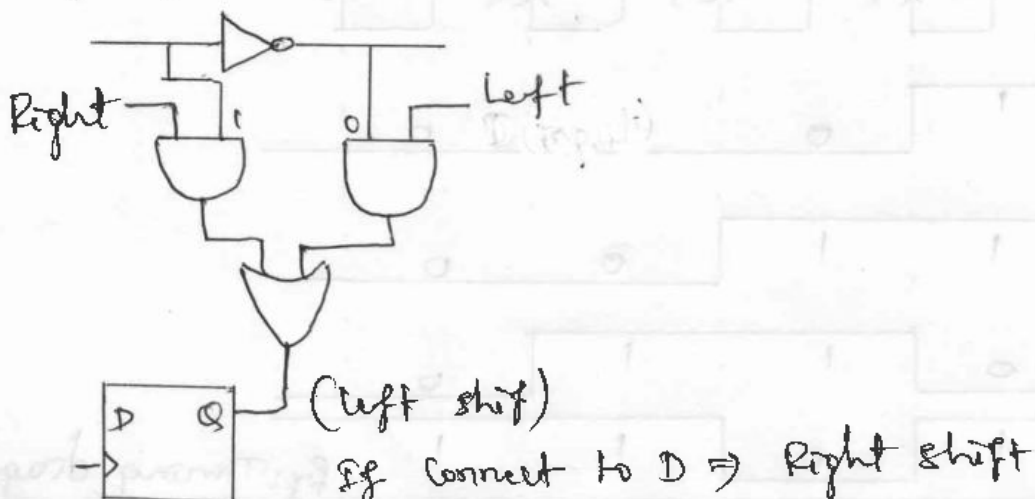 Right
1
0
Left
D Q
(left shif)
If connect to D ⇒ Right shift